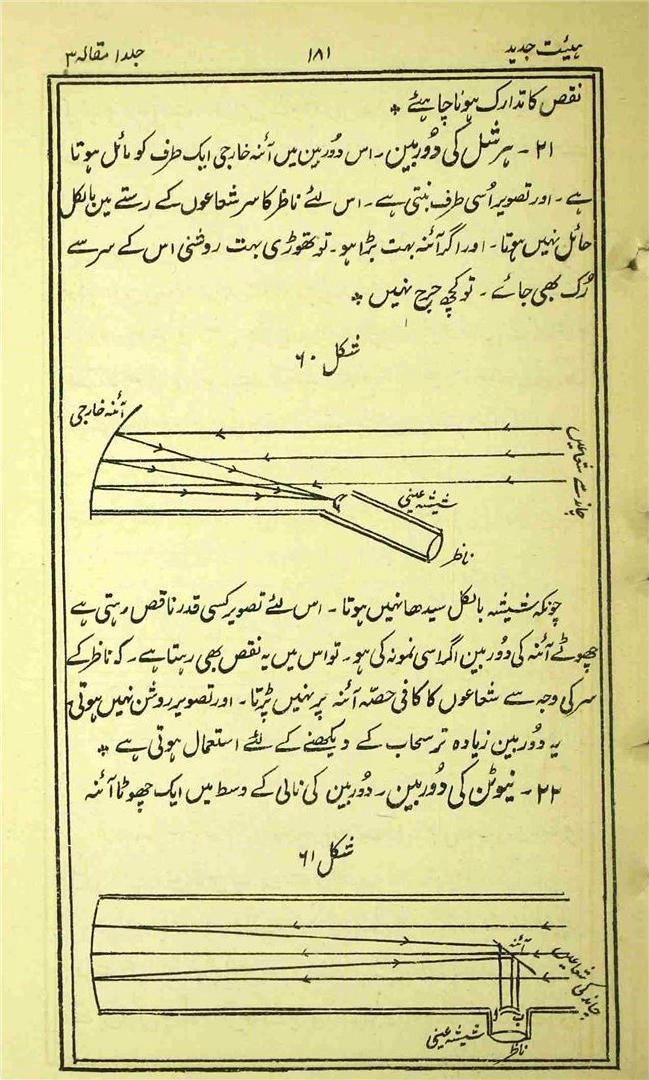 ہیئت جدید
۱۸۱
جلد۱ مقالہ ۳
نقص کا تدارک ہونا چاہئے *
۲۱ - ہرشل کی دُوربین - اس دُوربین میں آئنہ خارجی ایک طرف کو مائل ہوتا
ہے - اور تصویر اُسی طرف بنتی ہے - اس لئے ناظر کا سر شعاعوں کے رستے میں بالکل
حائل نہیں ہوتا - اور اگر آئنہ بہت بڑا ہو - تو تھوڑی بہت روشنی اس کے سر سے
رُک بھی جائے - تو کچھ حرج نہیں *
شکل ۶۰
آئنہ خارجی
چاند سے شعاعیں
شیشہ عینی
ناظر
چونکہ شیشہ بالکل سیدھا نہیں ہوتا - اس لئے تصویر کسی قدر ناقص رہتی ہے
چھوٹے آئنہ کی دُوربین اگر اسی نمونہ کی ہو - تو اس میں یہ نقص بھی رہتا ہے - کہ ناظر کے
سر کی وجہ سے شعاعوں کا کافی حصّہ آئنہ پر نہیں پڑتا - اور تصویر روشن نہیں ہوتی
یہ دُوربین زیادہ تر سحاب کے دیکھنے کے لئے استعمال ہوتی ہے *
۲۲ - نیوٹن کی دُوربین - دُوربین کی نالی کے وسط میں ایک چھوٹا آئنہ
شکل ۶۱
آئنہ
چاند کی شعاعیں
ا ب
شیشہ عینی
ناظر